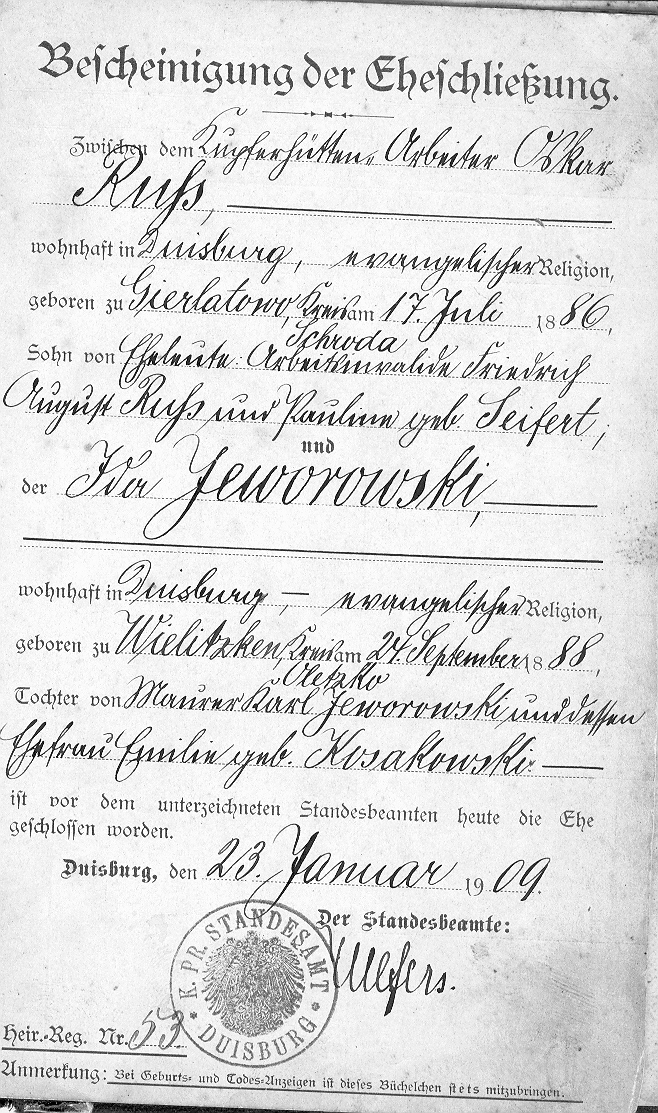 Bescheinigung der Eheschließung.
Zwischen dem Kupferhütten-Arbeiter Oskar
Russ,
wohnhaft in Duisburg, evangelischer Religion,
geboren zu Gierlatowo, Kreis am 17. Juli 1886,
Schroda
Sohn von Eheleute: Arbeitsinvalide Friedrich
August Russ und Pauline geb. Seifert,
und
der Ida Jeworowski,
wohnhaft in Duisburg, – evangelischer Religion,
geboren zu Wielitzken, Kreis am 24. September 1888,
Oletzko
Tochter von Maurer Karl Jeworowski und dessen
Ehefrau Emilie geb. Kosakowski.
ist vor dem unterzeichneten Standesbeamten heute die Ehe
geschlossen worden.
Duisburg, den 23. Januar 1909.
Der Standesbeamte:
K. PR. STANDESAMT
* DUISBURG *
Heir.-Reg. Nr. 53
Anmerkung: Bei Geburts- und Todes-Anzeigen ist dieses Büchelchen stets mitzubringen.